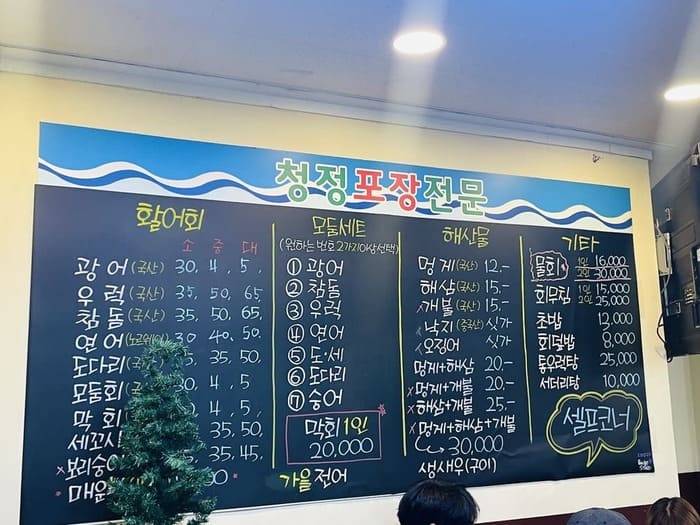 청정포장전문
활어회
소 중 대
광 어 (국산) 30, 4, 5,
우 럭 (국산) 35, 50, 65,
참 돔 (국산) 35, 50, 65,
연 어 30 40, 50,
도다리 35, 50,
모둠회 30, 4, 5
막 회 30, 4, 5
세꼬시 35, 50,
보리숭어 35, 45,
매운
모둠세트
(원하는 번호 2가지이상선택)
① 광어
② 참돔
③ 우럭
④ 연어
⑤ 도·세
⑥ 도다리
⑦ 숭어
막회 1인
20,000
가을전어
해산물
멍게 (국산) 12.-
해삼 (국산) 15.-
개불 (국산) 15.-
낙지 (중국산) 싯가
오징어 싯가
멍게+해삼 20.-
멍게+개불 20.-
해삼+개불 25.-
멍게+해삼+개불
30,000
생새우(구이)
기타
물회 1인 16,000
2인 30,000
회무침 1인 15,000
2인 25,000
초밥 13,000
회덮밥 8,000
통우럭탕 25,000
서더리탕 10,000
셀프코너